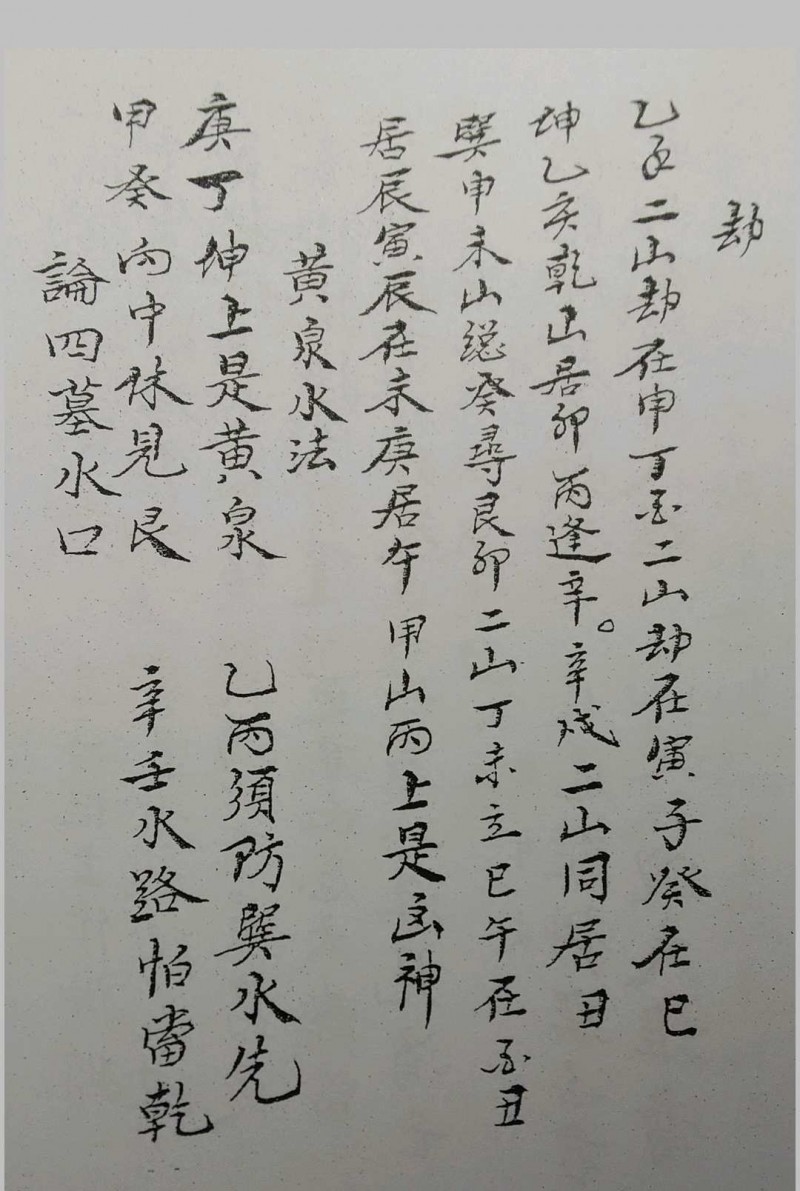 劫
乙二山劫在申丁酉二山劫在寅子癸在巳
坤乙亥乾山居卯丙逢辛。辛戌二山同居丑
巽申未山総癸尋艮卯二山丁未立巳午在酉丑
居辰寅辰在未庚居午甲山丙上是凶神
黃泉水法
庚丁坤上是黃泉　乙丙須防巽水先
甲癸向中休見艮　辛壬水路怕當乾
論四墓水口